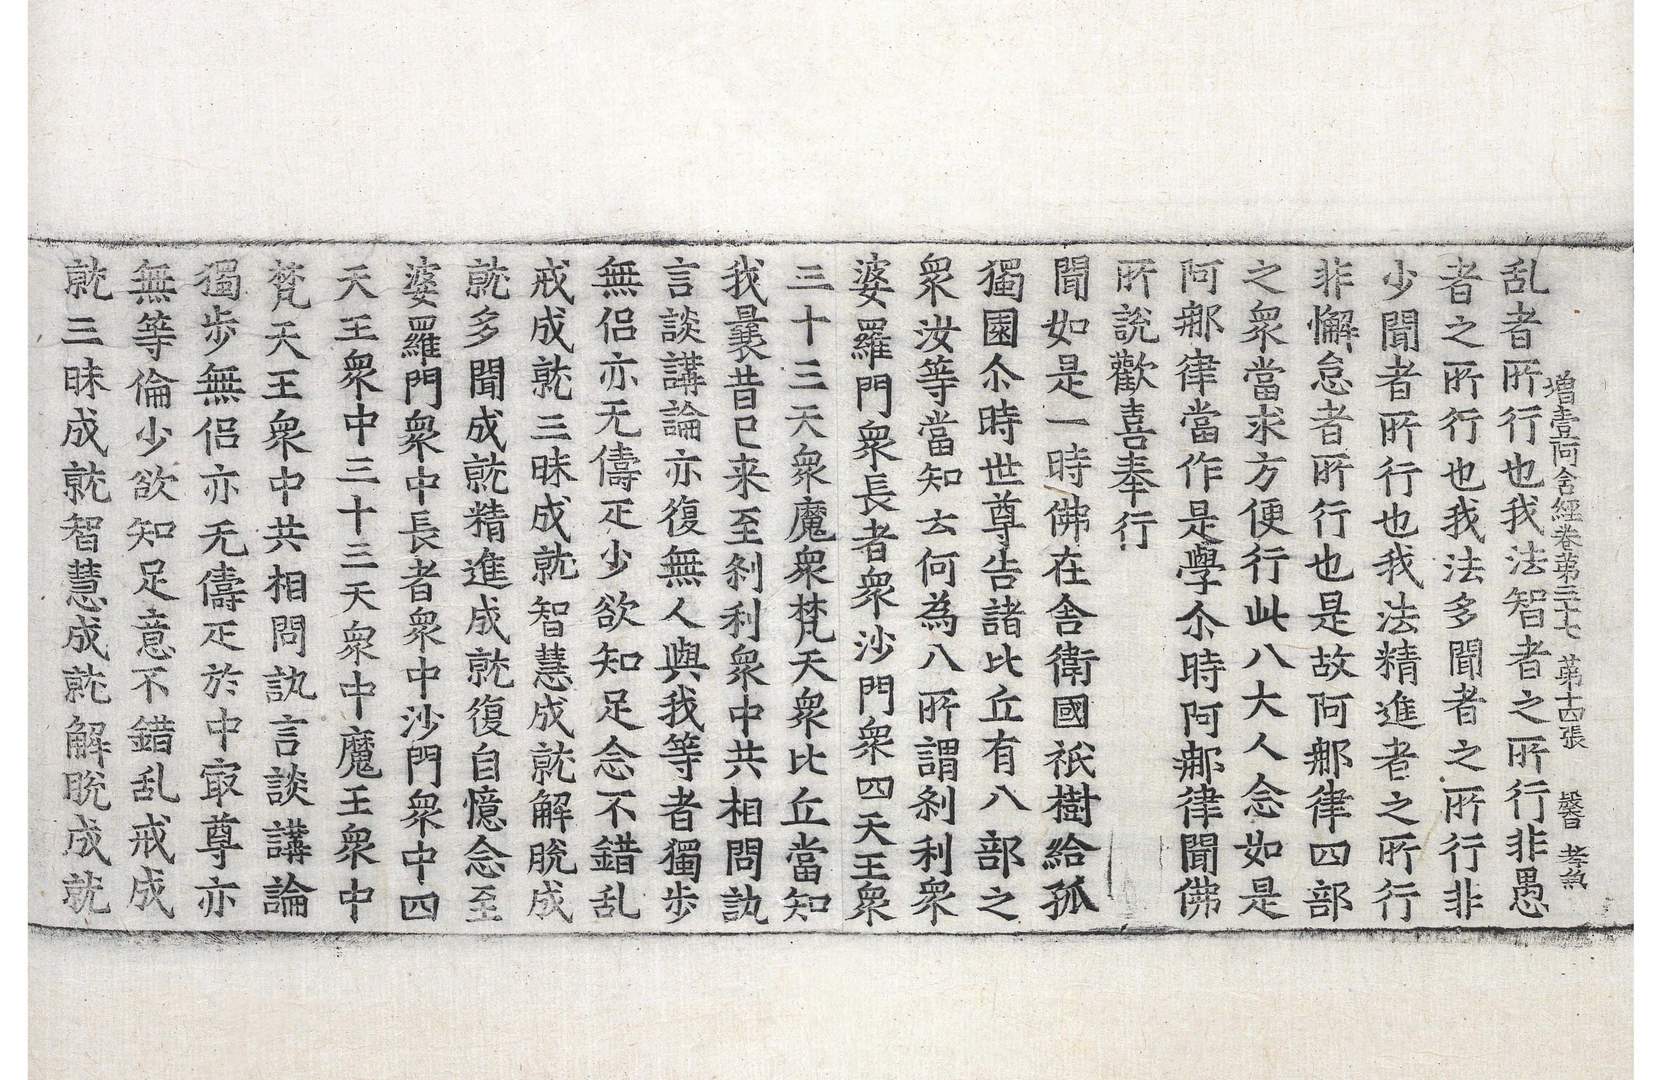 增壹阿含經卷第三十七 第十四張 孝兼
乱者所行也我法智者之所行非愚
者之所行也我法多聞者之所行非
少聞者所行也我法精進者之所行
非懈怠者所行也是故阿那律四部
之衆當求方便行此八大人念如是
阿那律當作是學尒時阿那律聞佛
所說歡喜奉行
聞如是一時佛在舍衛國祇樹給孤
獨園尒時世尊告諸比丘有八部之
衆汝等當知云何為八所謂刹利衆
婆羅門衆長者衆沙門衆四天王衆
三十三天衆魔衆梵天衆比丘當知
我曩昔已来至刹利衆中共相問訊
言談講論亦復無人與我等者獨步
無侶亦无儔疋少欲知足念不錯乱
戒成就三昧成就智慧成就解脫成
就多聞成就精進成就復自憶念至
婆羅門衆中長者衆中沙門衆中四
天王衆中三十三天衆中魔王衆中
梵天王衆中共相問訊言談講論
獨步無侶亦无儔疋於中㝡尊亦
無等倫少欲知足意不錯乱戒成
就三昧成就智慧成就解脫成就